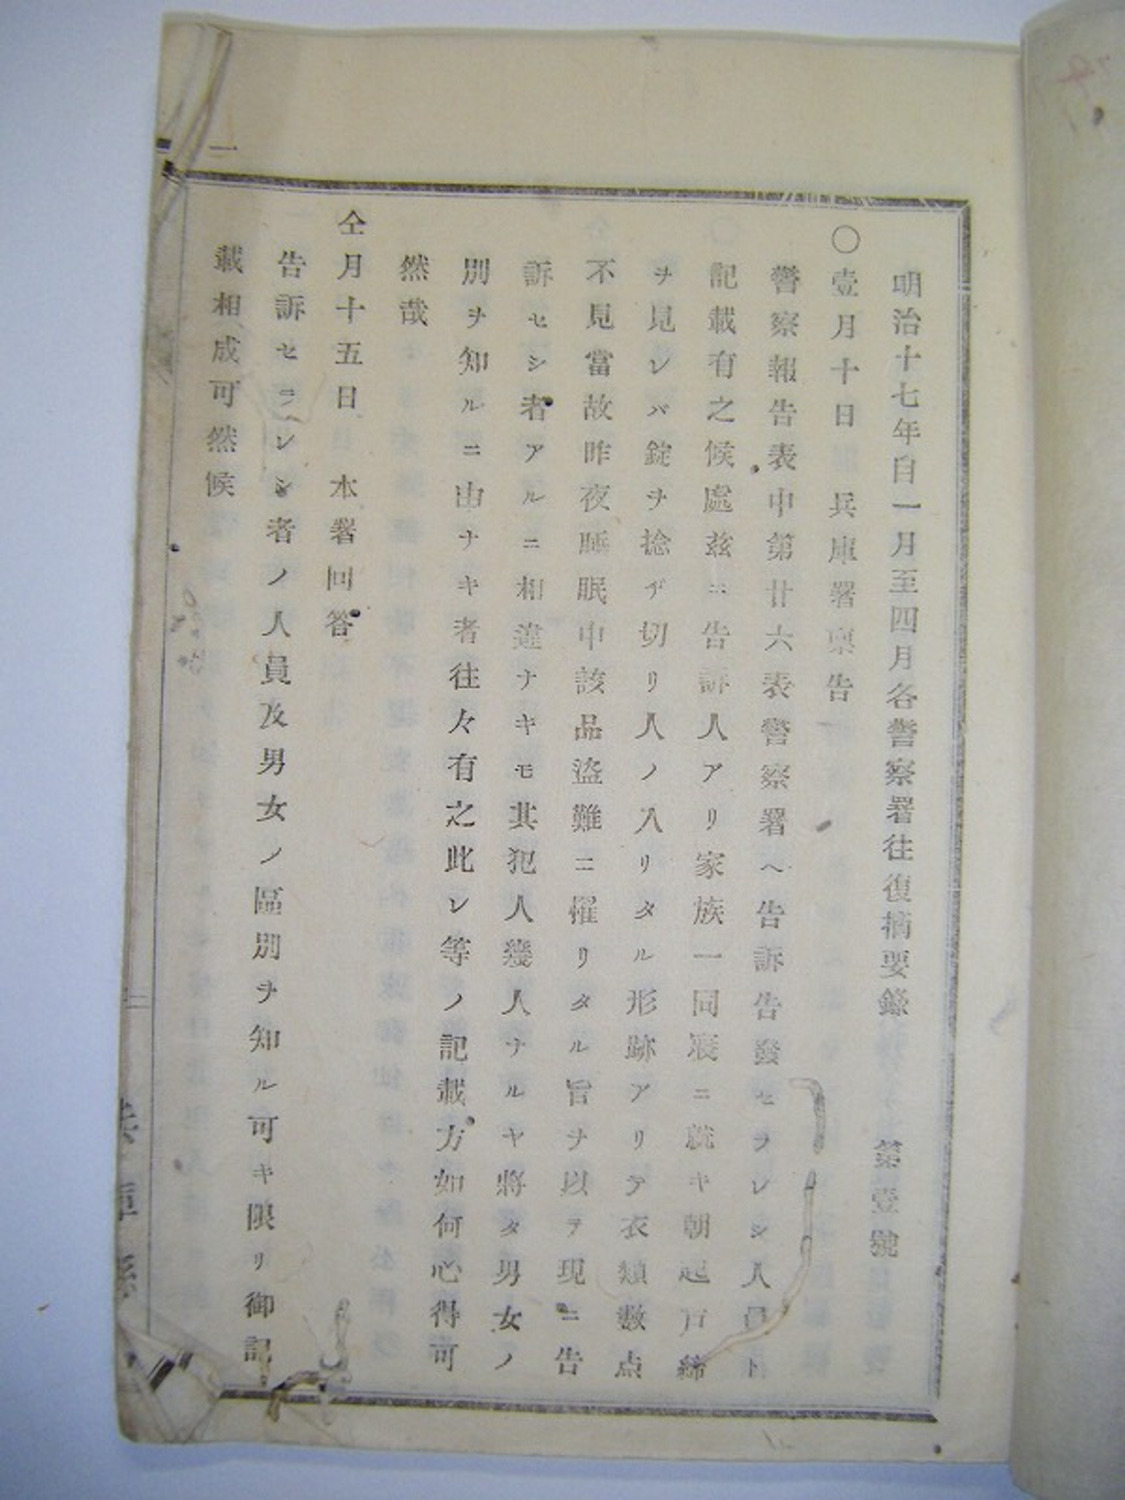 明治十七年自一月至四月各警察署往復摘要錄　第壹號
〇壹月十日　兵庫署禀告
警察報告表中第廿六表警察署ヘ告訴告發セヲレシ人員ト
記載有之候處茲ニ告訴人アリ家族一同寢ニ就キ朝起戸締
ヲ見レバ錠ヲ捻ヂ切リ人ノ入リタル形跡アリテ衣類數点
不見當故昨夜睡眠中該品盜難ニ罹リタル旨ヲ以テ現ニ告
訴セシ者アルニ相違ナキモ其犯人幾人ナルヤ將タ男女ノ
別ヲ知ルニ由ナキ者往々有之此レ等ノ記載方如何心得可
然哉
仝月十五日　本署回答
告訴セラレシ者ノ人員及男女ノ區別ヲ知ル可キ限リ御記
載相成可然候
一
二
兵庫縣